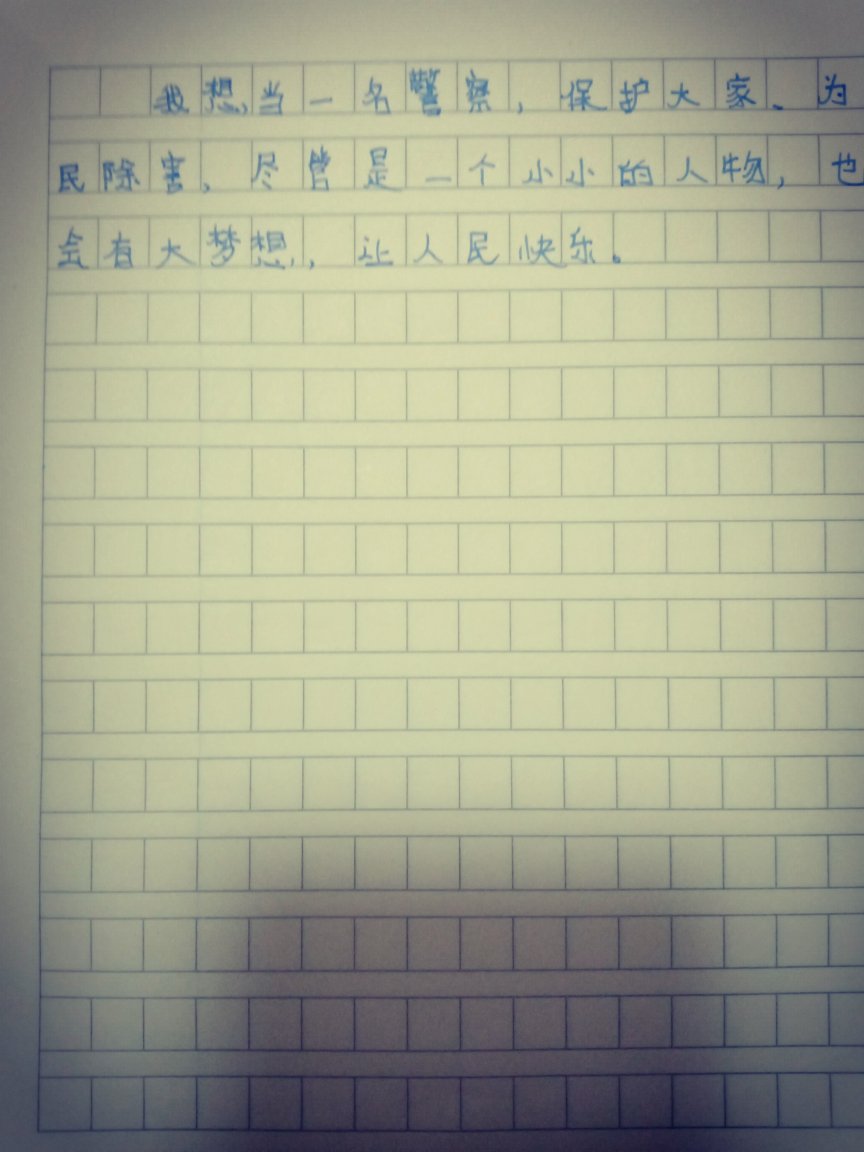 我想当一名警察，保护大家、为
民除害，尽管是一个小小的人物，也
会有大梦想，让人民快乐。